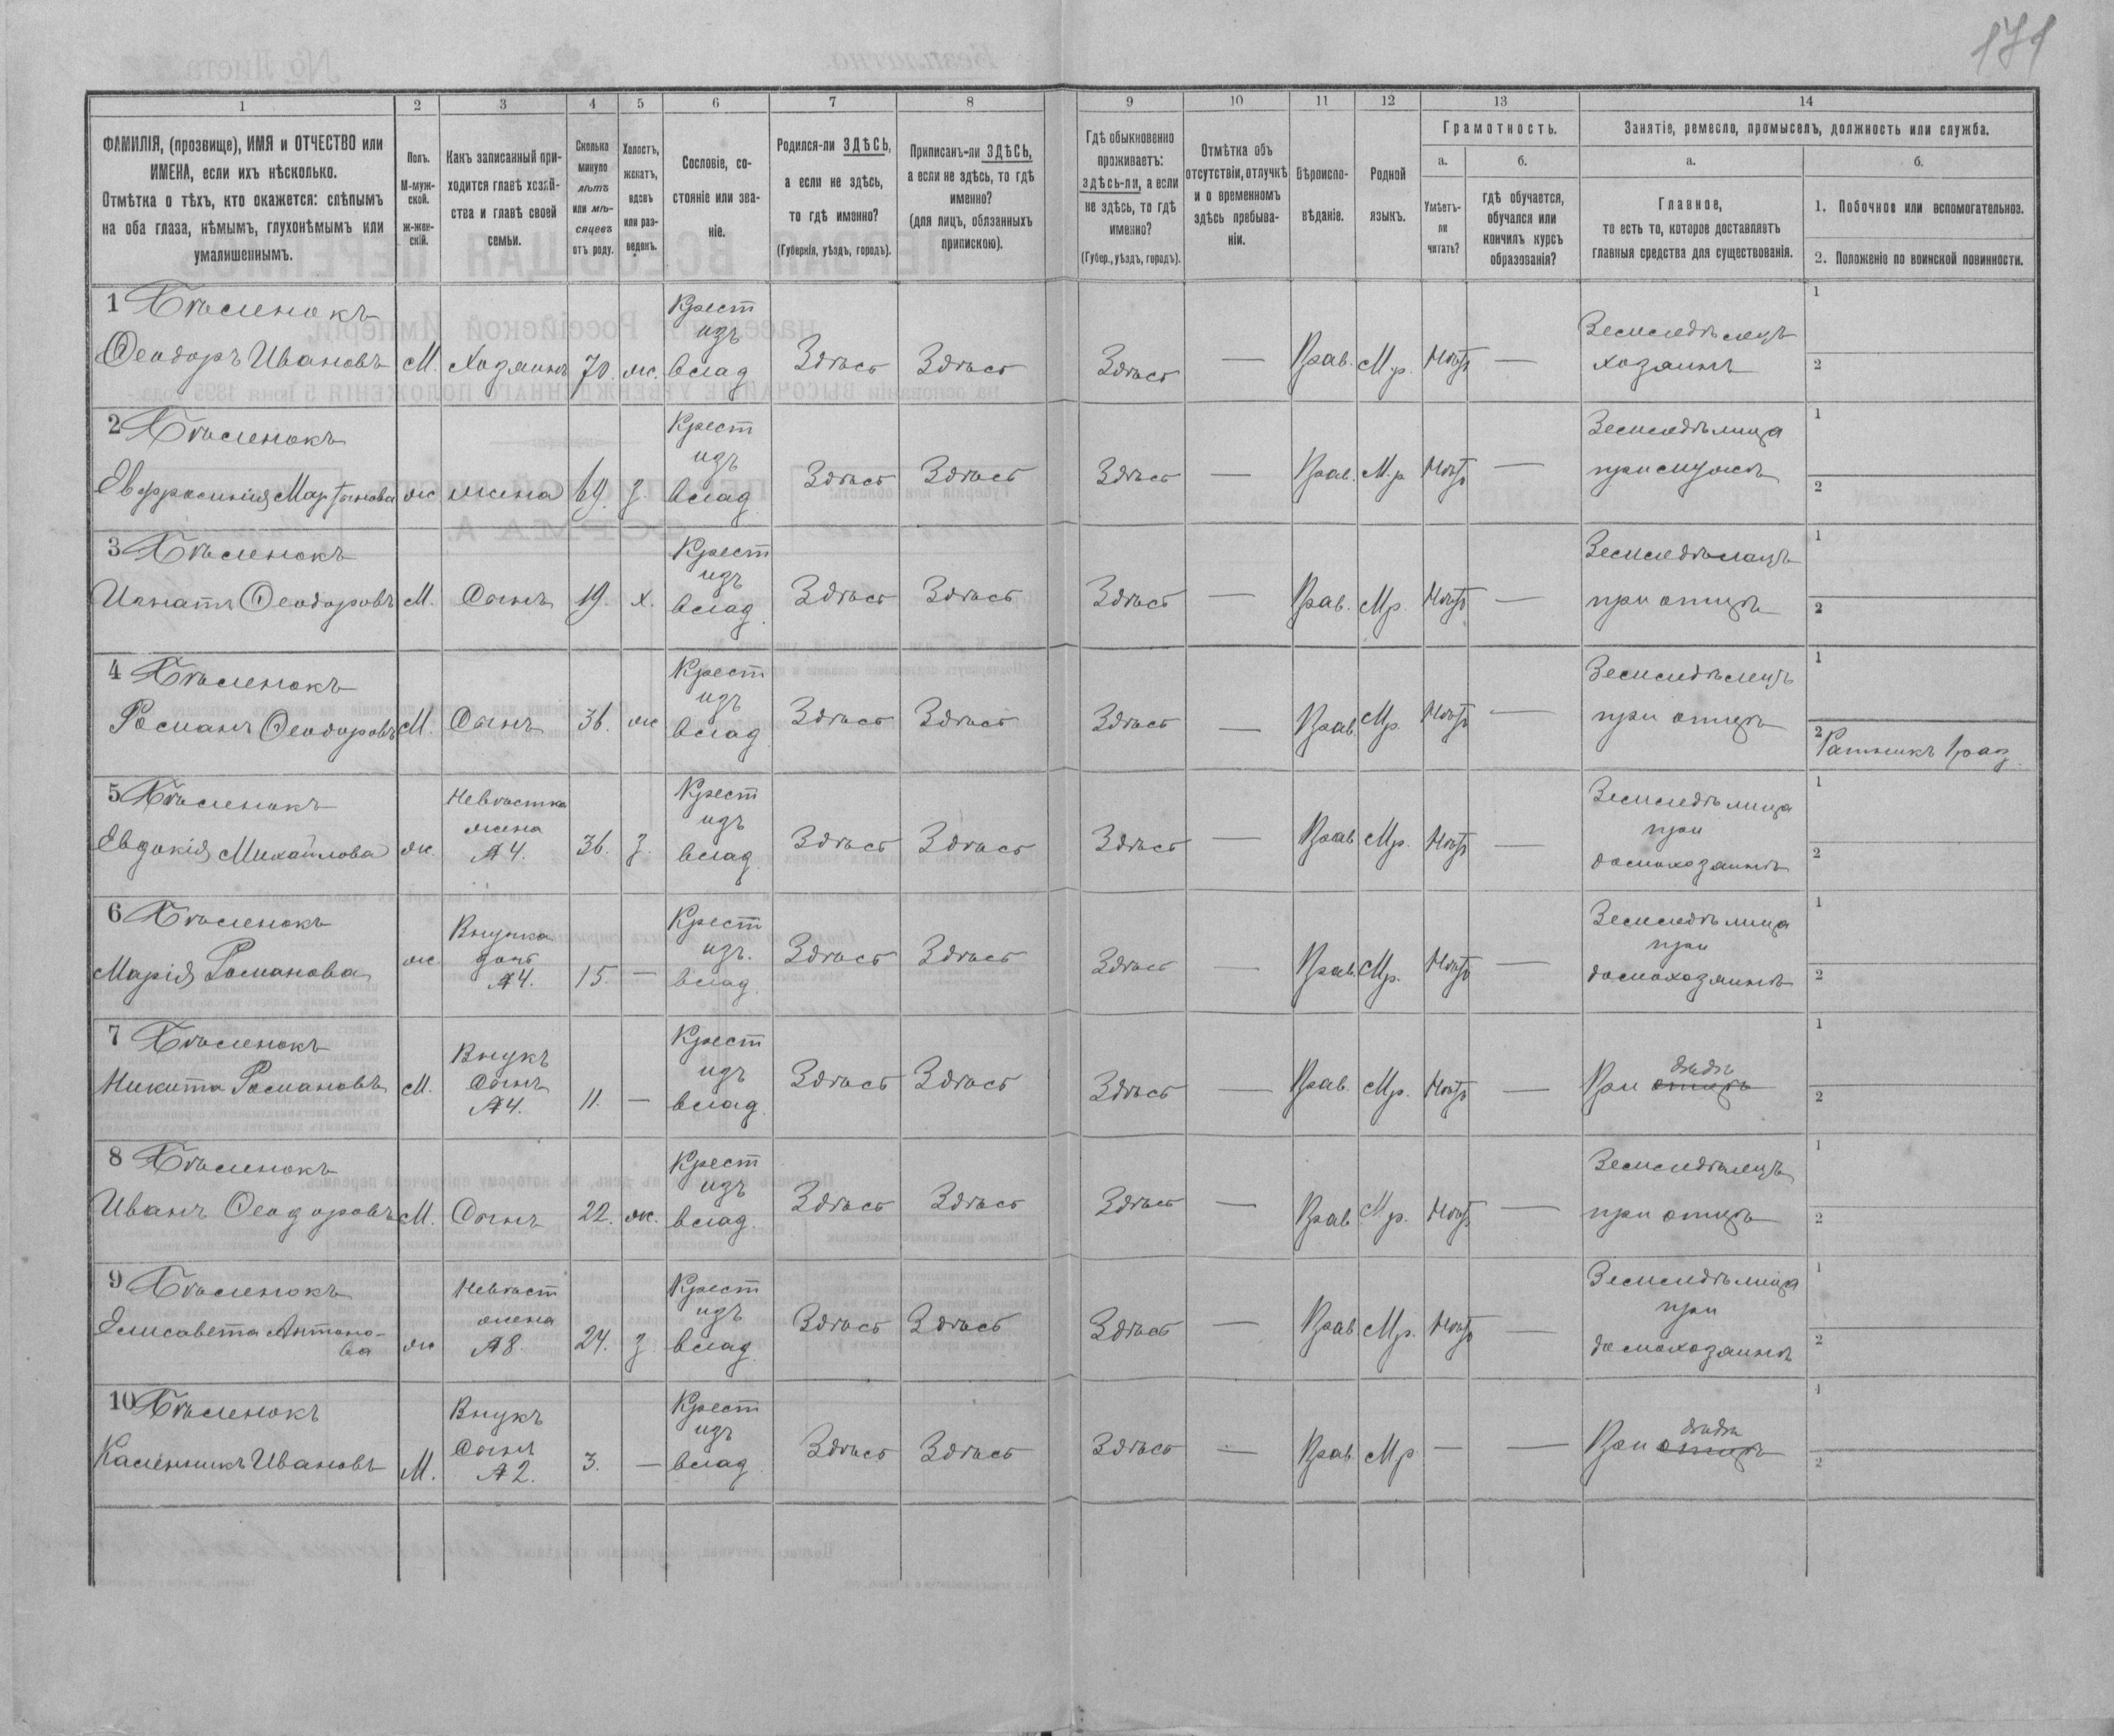 171
1 2 3 4 5 6 7 8 9 10 11 12 13 14
ФАМИЛІЯ, (прозвище), ИМЯ и ОТЧЕСТВО или
ИМЕНА, если ихъ нѣсколько.
Отмѣтка о тѣхъ, кто окажется: слѣпымъ
на оба глаза, нѣмымъ, глухонѣмымъ или
умалишеннымъ.
Полъ.
М-муж-
ской.
Ж-жен-
скій.
Какъ записанный при-
ходится главѣ хозяй-
ства и главѣ своей
семьи.
Сколько
минуло
лѣтъ
или мѣ-
сяцевъ
отъ роду.
Холостъ,
женатъ,
вдовъ
или раз-
веденъ.
Сословіе, со-
стояніе или зва-
ніе.
Родился-ли ЗДѢСЬ,
а если не здѣсь,
то гдѣ именно?
(Губернія, уѣздъ, городъ).
Приписанъ-ли ЗДѢСЬ,
а если не здѣсь, то гдѣ
именно?
(для лицъ, обязанныхъ
припискою).
Гдѣ обыкновенно
проживаетъ:
здѣсь-ли, а если
не здѣсь, то гдѣ
именно?
(Губер., уѣздъ, городъ).
Отмѣтка объ
отсутствіи, отлучкѣ
и о временномъ
здѣсь пребыва-
ніи.
Вѣроиспо-
вѣданіе.
Родной
языкъ.
Грамотность.
а.
Умѣетъ-
ли
читать?
б.
гдѣ обучается,
обучался или
кончилъ курсъ
образованія?
Занятіе, ремесло, промыселъ, должность или служба.
а.
Главное,
то есть то, которое доставляетъ
главныя средства для существованія.
б.
1. Побочное или вспомогательное.
2. Положеніе по воинской повинности.
1 Хтѣменокъ
Ѳеодоръ Ивановъ М. Хозяинъ 70. ж. Крест изъ влад Здѣсь Здѣсь Здѣсь — Прав. Мр. Нѣтъ —
Земледѣлецъ
хозяинъ
1
2
2
Евфросинія Мартынова ж жена 69. з. Крест изъ влад Здѣсь Здѣсь Здѣсь — Прав. М.р Нѣтъ —
Земледѣлица
при мужѣ
1
2
3
Игнатъ Ѳеодоровъ М. Сынъ 19. х. Крест изъ влад. Здѣсь Здѣсь Здѣсь — Прав. Мр. Нѣтъ —
Земледѣлецъ
при отцѣ
1
2
4
Романъ Ѳеодоровъ М. Сынъ 36. ж Крест изъ влад Здѣсь Здѣсь Здѣсь — Прав. Мр. Нѣтъ —
Земледѣлецъ
при отцѣ
1
2 Ратникъ 1 раз.
5
Евдокія Михайлова ж. Невѣстка жена №4. 36. з. Крест изъ влад Здѣсь Здѣсь Здѣсь — Прав Мр. Нѣтъ —
Земледѣлица
при
домохозяинѣ
1
2
6
Марія Романова ж. Внучка дочь №4. 15. — Крест изъ. влад. Здѣсь Здѣсь Здѣсь — Прав. Мр. Нѣтъ —
Земледѣлица
при
домохозяинѣ
1
2
7
Никита Романовъ М. Внукъ Сынъ №4. 11. — Крест изъ влад. Здѣсь Здѣсь Здѣсь — Прав. Мр. Нѣтъ —
дѣдѣ
При отцѣ
1
2
8
Иванъ Ѳеодоровъ М. Сынъ 22. ж. Крест изъ влад. Здѣсь Здѣсь Здѣсь — Прав Мр. Нѣтъ —
Земледѣлецъ
при отцѣ
1
2
9
Елисавета Антоно-
ва ж Невѣст жена №8. 24. з Крест изъ влад Здѣсь Здѣсь Здѣсь — Прав Мр. Нѣтъ —
Земледѣлица
при
домохозяинѣ
1
2
10
Каленникъ Ивановъ М. Внукъ Сынъ №2. 3. — Крест изъ влад Здѣсь Здѣсь Здѣсь — Прав Мр — —
дѣдѣ
При отцѣ
1
2